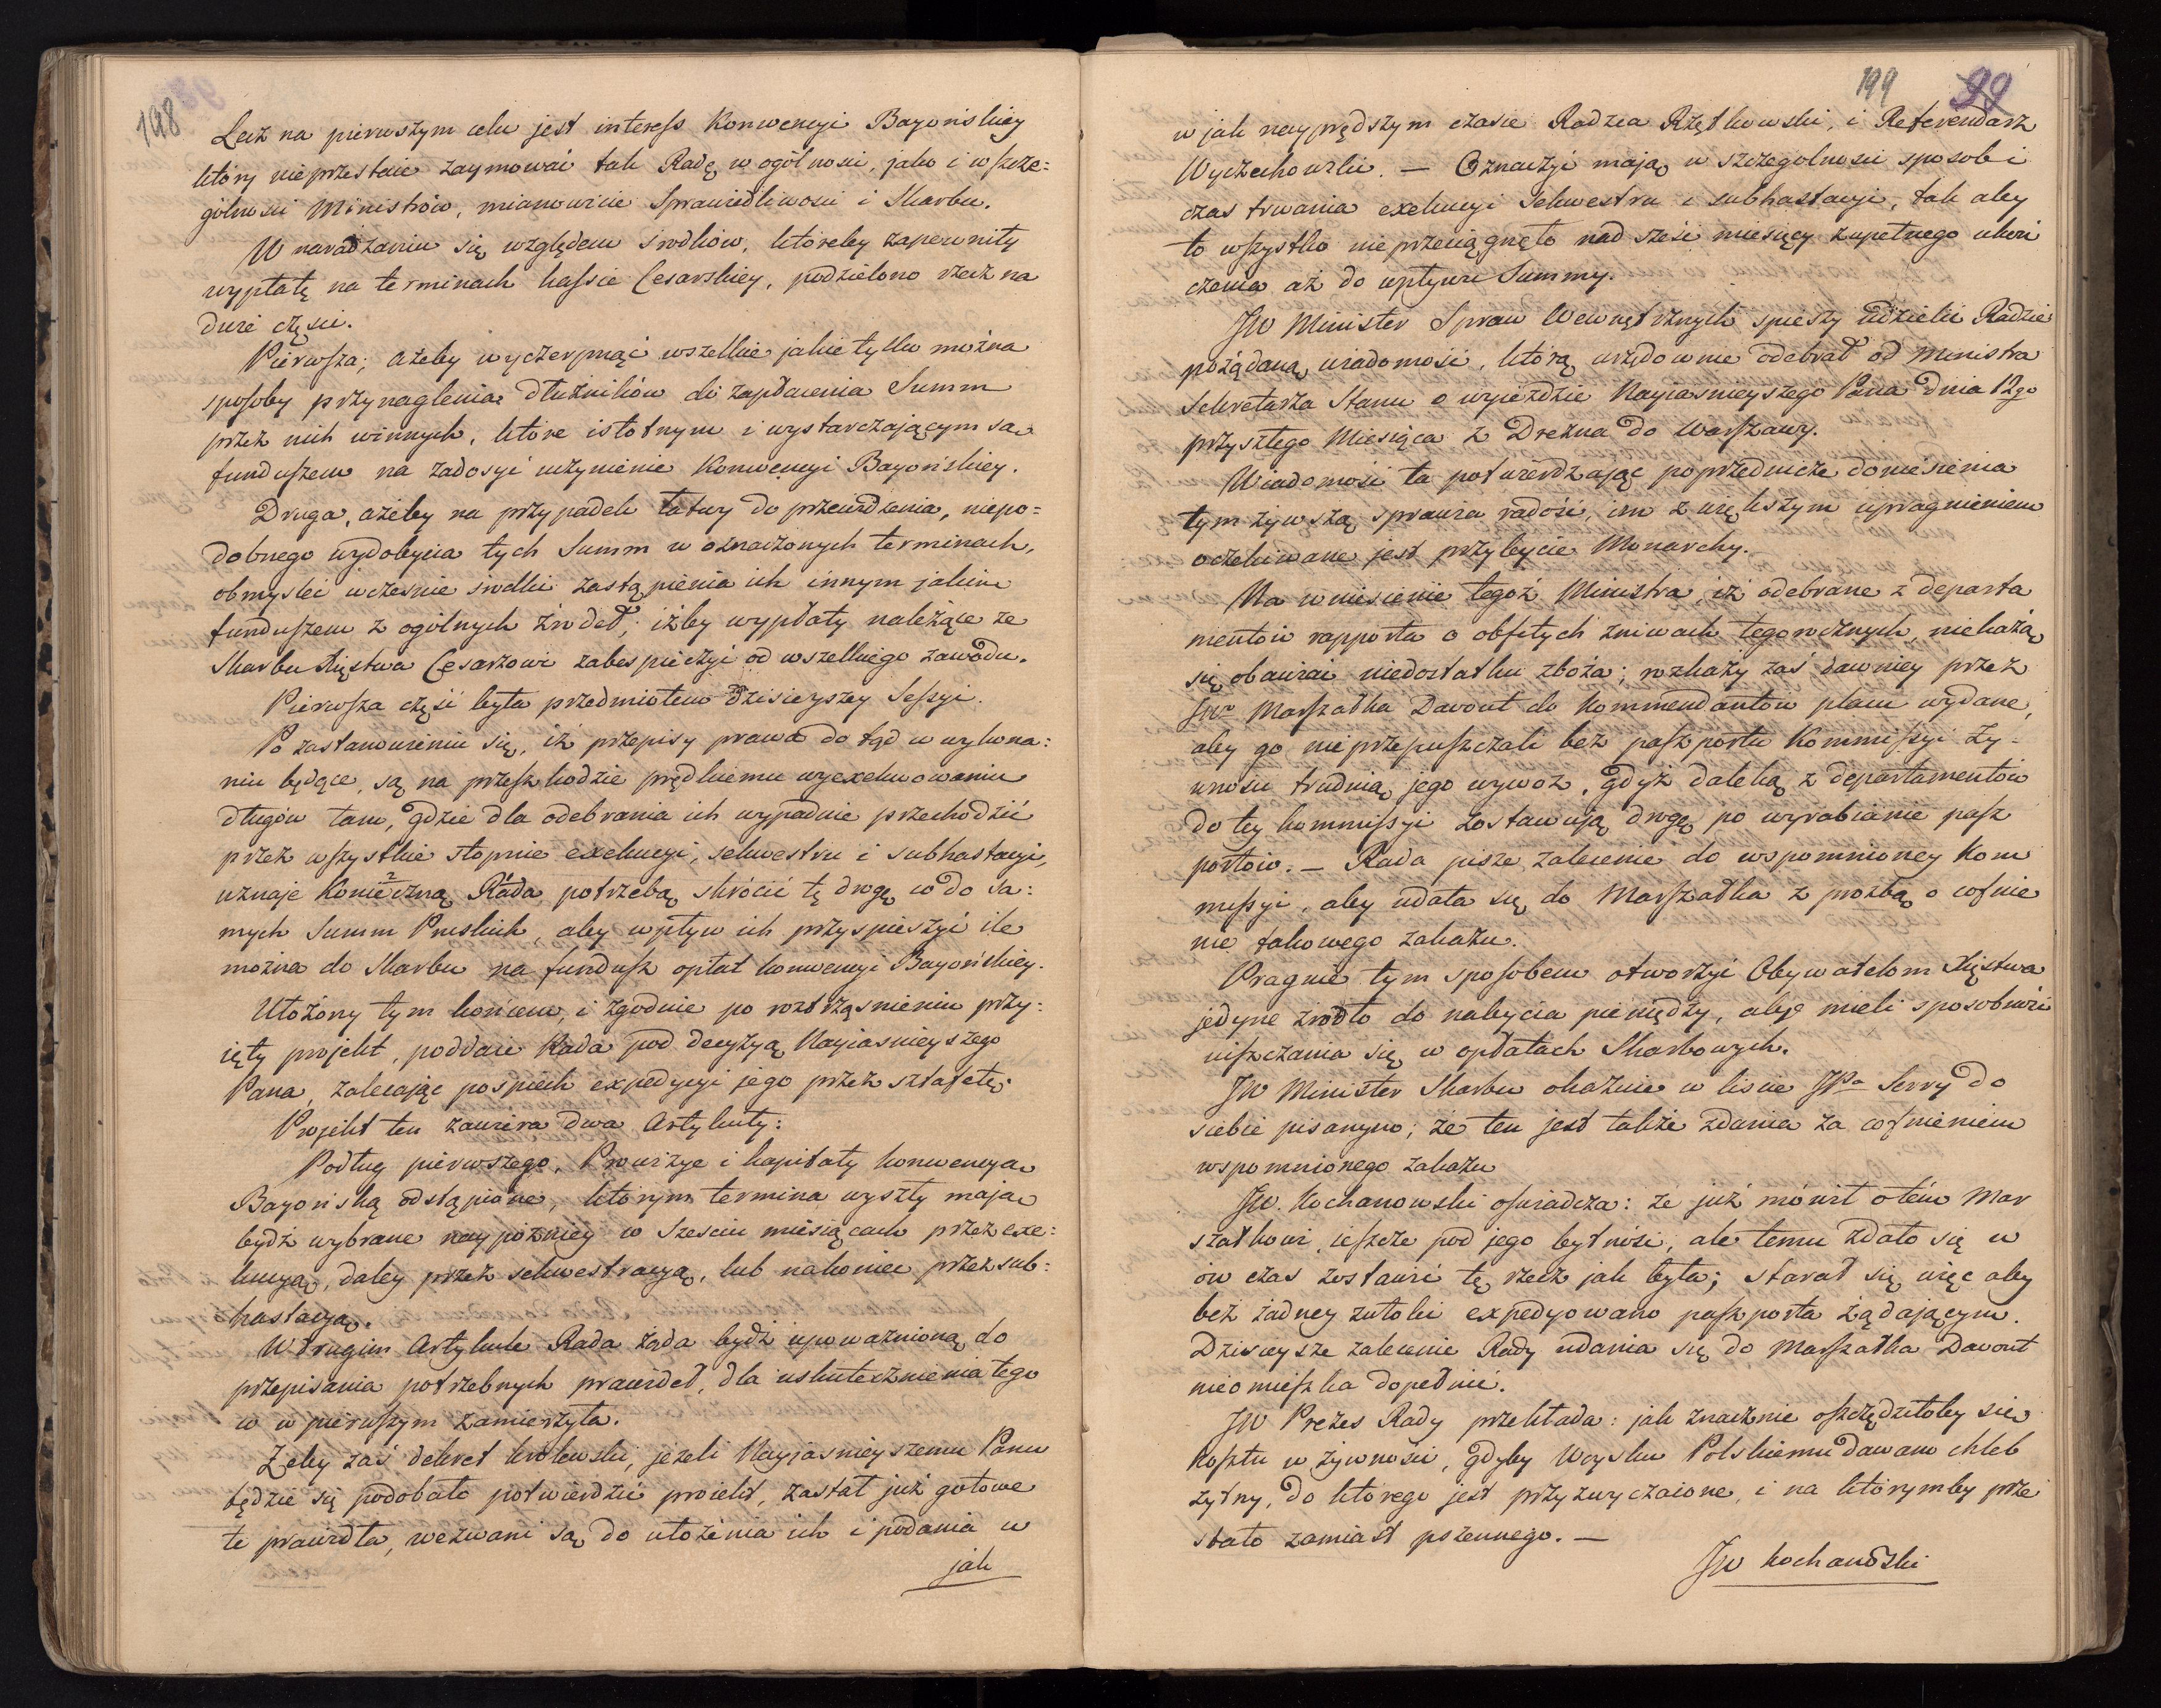 198
Lecz na pierwszym celu jest interess Konwencyi Bayońskiey
który nieprzestaie zaymować tak Radę w ogólności, jako i w szcze=
gólności Ministrów, mianowicie Sprawiedliwości i Skarbu.
W naradzaniu się względem środków, któreby zapewniły
wypłatę na terminach kassie Cesarskiey, podzielono rzecz na
dwie części.
Pierwsza; ażeby wyczerpnąć wszelkie jakie tylko można
sposoby przynaglenia dłużników do zapłacenia Summ
przez nich winnych, które istotnym i wystarczającym są
funduszem na zadosyć uczynienie Konwencyi Bayońskiey.
Druga, ażeby na przypadek łatwy do przewidzenia, niepo=
dobnego wydobycia tych Summ w oznaczonych terminach,
obmyślić wcześnie środki zastąpienia ich innym jakim
funduszem z ogólnych źródeł; iżby wypłaty należące ze
Skarbu Xięstwa Cesarzowi zabespieczyć od wszelkiego zawodu.
Pierwsza część była przedmiotem dzisieyszey Sessyi.
Po zastanowieniu się, iż przepisy prawa do tąd w wykona=
niu będące, są na przeszkodzie prędkiemu wyexekwowaniu
długów tam, gdzie dla odebrania ich wypadnie przechodzić
przez wszystkie stopnie exekucyi, sekwestru i subhastacyi,
uznaje Konieczną Rada potrzebą skrócić tę drogę co do sa=
mych Summ Pruskich, aby wpływ ich przyspieszyć ile
można do Skarbu na fundusz opłat konwencyi Bayońskiey.
Ułożony tym końcem, i zgodnie po roztrząśnieniu przy=
ięty projekt, poddaie Rada pod decyzyą Nayiaśnieyszego
Pana, zalecając pospiech expedycyi jego przez sztafetę.
Projekt ten zawiera dwa Artykuły:
Podług pierwszego, Prowizye i kapitały konwencyą
Bayońską odstąpione, którym termina wyszły mają
bydź wybrane naypóźniey w Sześciu miesiącach przez exe=
kucyą, daley przez sekwestracyą, lub nakoniec przez sub=
hastacyą.
W drugim Artykule Rada żąda bydź upoważnioną do
przepisania potrzebnych prawideł, dla uskutecznienia tego
co w pierwszym zamierzyła.
Żeby zaś dekret krolewski, jeżeli Nayjaśnieyszemu Panu
będzie się podobało potwierdzić proiekt, zastał już gotowe
te prawidła, wezwani są do ułożenia ich i podania w
jak
199 99
w jak nayprędszym czasie Radzca Rzętkowski, i Referendarz
Wyczechowski. — Oznaczyć mają w szczególności sposob i
czas trwania exekucyi Sekwestru i subhastacyi, tak aby
to wszystko nieprzeciągnęło nad sześć miesięcy zupełnego ukoń
czenia aż do wpływu Summy.
JW Minister Spraw Wewnętrznych spieszy udzielić Radzie
pożądaną wiadomość, którą urzędownie odebrał od Ministra
Sekretarza Stanu o wyieździe Nayiaśnieyszego Pana dnia 12go
przyszłego Miesiąca z Drezna do Warszawy.
Wiadomość ta potwierdzając poprzednicze doniesienia
tym żywszą sprawia radość, im z większym upragnieniem
oczekiwane jest przybycie Monarchy.
Na wniesienie tegoż Ministra, iż odebrane z departa
mentów rapporta o obfitych żniwach tegorocznych, niekażą
się obawiać niedostatku zboża; rozkazy zaś dawniey przez
JWo Marszałka Davout do Kommendantów placu wydane,
aby go nieprzepuszczali bez paszportu Kommissyi Ży=
wności trudnią jego wywoz, gdyż daleką z departamentów
do tey kommissyi zostawują drogę po wyrabianie pasz
portów. — Rada pisze zalecenie do wspomnioney Kom
missyi, aby udała się do Marszałka z prozbą o cofnie
nie takowego zakazu.
Pragnie tym sposobem otworzyć Obywatelom Xięstwa
jedyne źrodło do nabycia pieniędzy, aby mieli sposobność
uiszczania się w opłatach Skarbowych.
JW Minister Skarbu okazuie w liście JPa Serry do
siebie pisanym; że ten jest także zdania za cofnieniem
wspomnionego zakazu
JW. Kochanowski oświadcza: że już mówił o tém Mar
szałkowi, ieszcze pod jego bytność, ale temu zdało się w
ów czas zostawić tę rzecz jak była; starał się więc aby
bez żadney zwłoki expedyowano paszporta żądającym.
Dzisieysze zalecenie Rady udania się do Marszałka Davout
nieomieszka dopełnić.
JW Prezes Rady przekłada: jak znacznie oszczędziłoby się
kosztu w żywności, gdyby Woysku Polskiemu dawano chleb
żytny, do którego jest przyzwyczaione, i na którymby prze
stało zamiast pszennego. —
JW Kochanowski